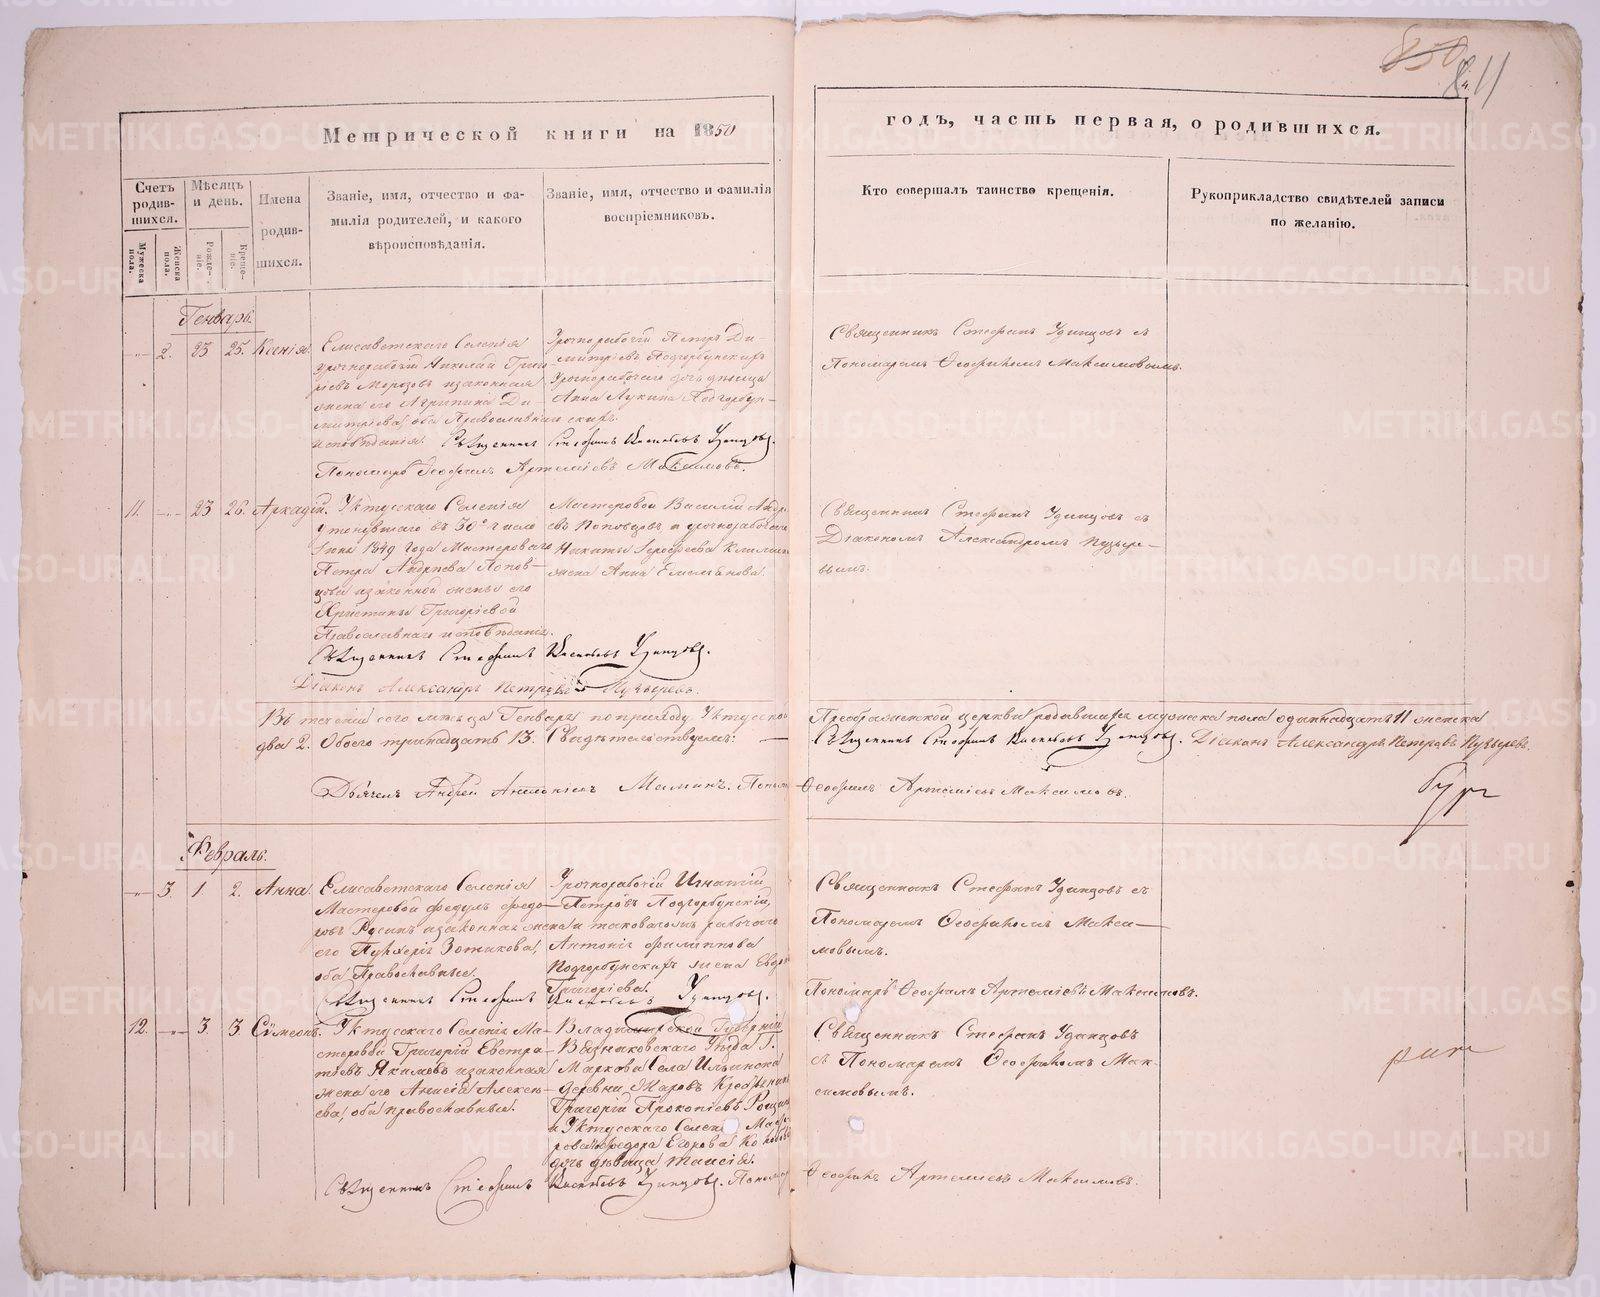 811
Метрической книги на 1850
годъ, часть первая, о родившихся.
Счетъ родив-шихся.
Мужеска пола.
Женска пола.
Мѣсяцъ и день.
Рожде-ніе.
Креще-ніе.
Имена родив-шихся.
Званіе, имя, отчество и фа-
милія родителей, и какого
вѣроисповѣданія.
Званіе, имя, отчество и фамилія
воспріемниковъ.
Кто совершалъ таинство крещенія.
Рукоприкладство свидѣтелей записи
по желанію.
Генварь.
2. 23 25. Ксенія.
Елисаветскаго Селенія
урочнорабочій Николай Григо
рьевъ Морозовъ и законная
жена его Агрипина Ди-
митріева, оба Православнаго
исповѣданія.
Урочнорабочій Петръ Ди-
митріевъ Подгорбунскихъ
Урочнорабочаго дочь дѣвица
Анна Лукина Подгорбун-
скихъ.
Священникъ Стефанъ Удинцовъ съ
Пономаремъ Ѳеофаномъ Максимовымъ.
Священникъ Стефанъ Удинцовъ.
Пономарь Артеміевъ Максимовъ.
11. 23 26. Аркадій.
Уктусскаго Селенія
въ 30е число
1849 года Мастероваго
Петра Андреева Попов-
цова и законной жены его
Христины Григоріевой
Православнаго исповѣданія.
Мастеровой Василій Андре
евъ Поповцовъ, и урочнорабочаго
Никиты
жена Анна Емельянова.
Священникъ Стефанъ Удинцовъ съ
Діакономъ Александромъ Пузыре-
вымъ.
Священникъ Стефанъ Удинцовъ.
Діаконъ Александръ Петровъ Пузыревъ.
Въ теченіи сего мѣсяца Генваря по приходу Уктусской
Преображенской церкви родившихся мужеска пола одиннадцать 11 женска
два 2. Обоего тринадцать 13. Свидѣтельствуемъ:
Священникъ Стефанъ Удинцовъ. Діаконъ Александръ Петровъ Пузыревъ.
Дьячекъ Андрей Маминъ.
Артеміевъ Максимовъ.
Февраль.
3. 1. 2. Анна.
Елисаветскаго Селенія
Мастеровой Федулъ Федо-
товъ Русинъ и законная жена
его Пулхерія Зотикова,
оба Православные.
Урочнорабочій Игнатій
Петровъ Подгорбунскій,
и таковагожъ рабочаго
Антонія Филиппова
Подгорбунскихъ жена
Григоріева.
Священникъ Стефанъ Удинцовъ съ
Пономаремъ Ѳеофаномъ Макси-
мовымъ.
Священникъ Стефанъ Удинцовъ.
Пономарь Артеміевъ Максимовъ.
12. 3. 3. Сѵмеонъ.
Уктусскаго Селенія Ма-
стеровой Григорій Евстра-
тіевъ Якимовъ и законная
жена его Анисія Алексе-
ева, оба православные.
Владимірской Губерніи
Вязниковскаго Уѣзда Г.
Маркова Села Ильинска
деревни Жаровъ Крестьянинъ
Григорій Прокопіевъ
и Уктусскаго Селенія
Федора Егорова
дочь дѣвица Таисія.
Священникъ Стефанъ Удинцовъ
съ Пономаремъ Ѳеофаномъ Мак-
симовымъ.
Священникъ Стефанъ Удинцовъ.
Артеміевъ Максимовъ.
METRIKI.GASO-URAL.RU